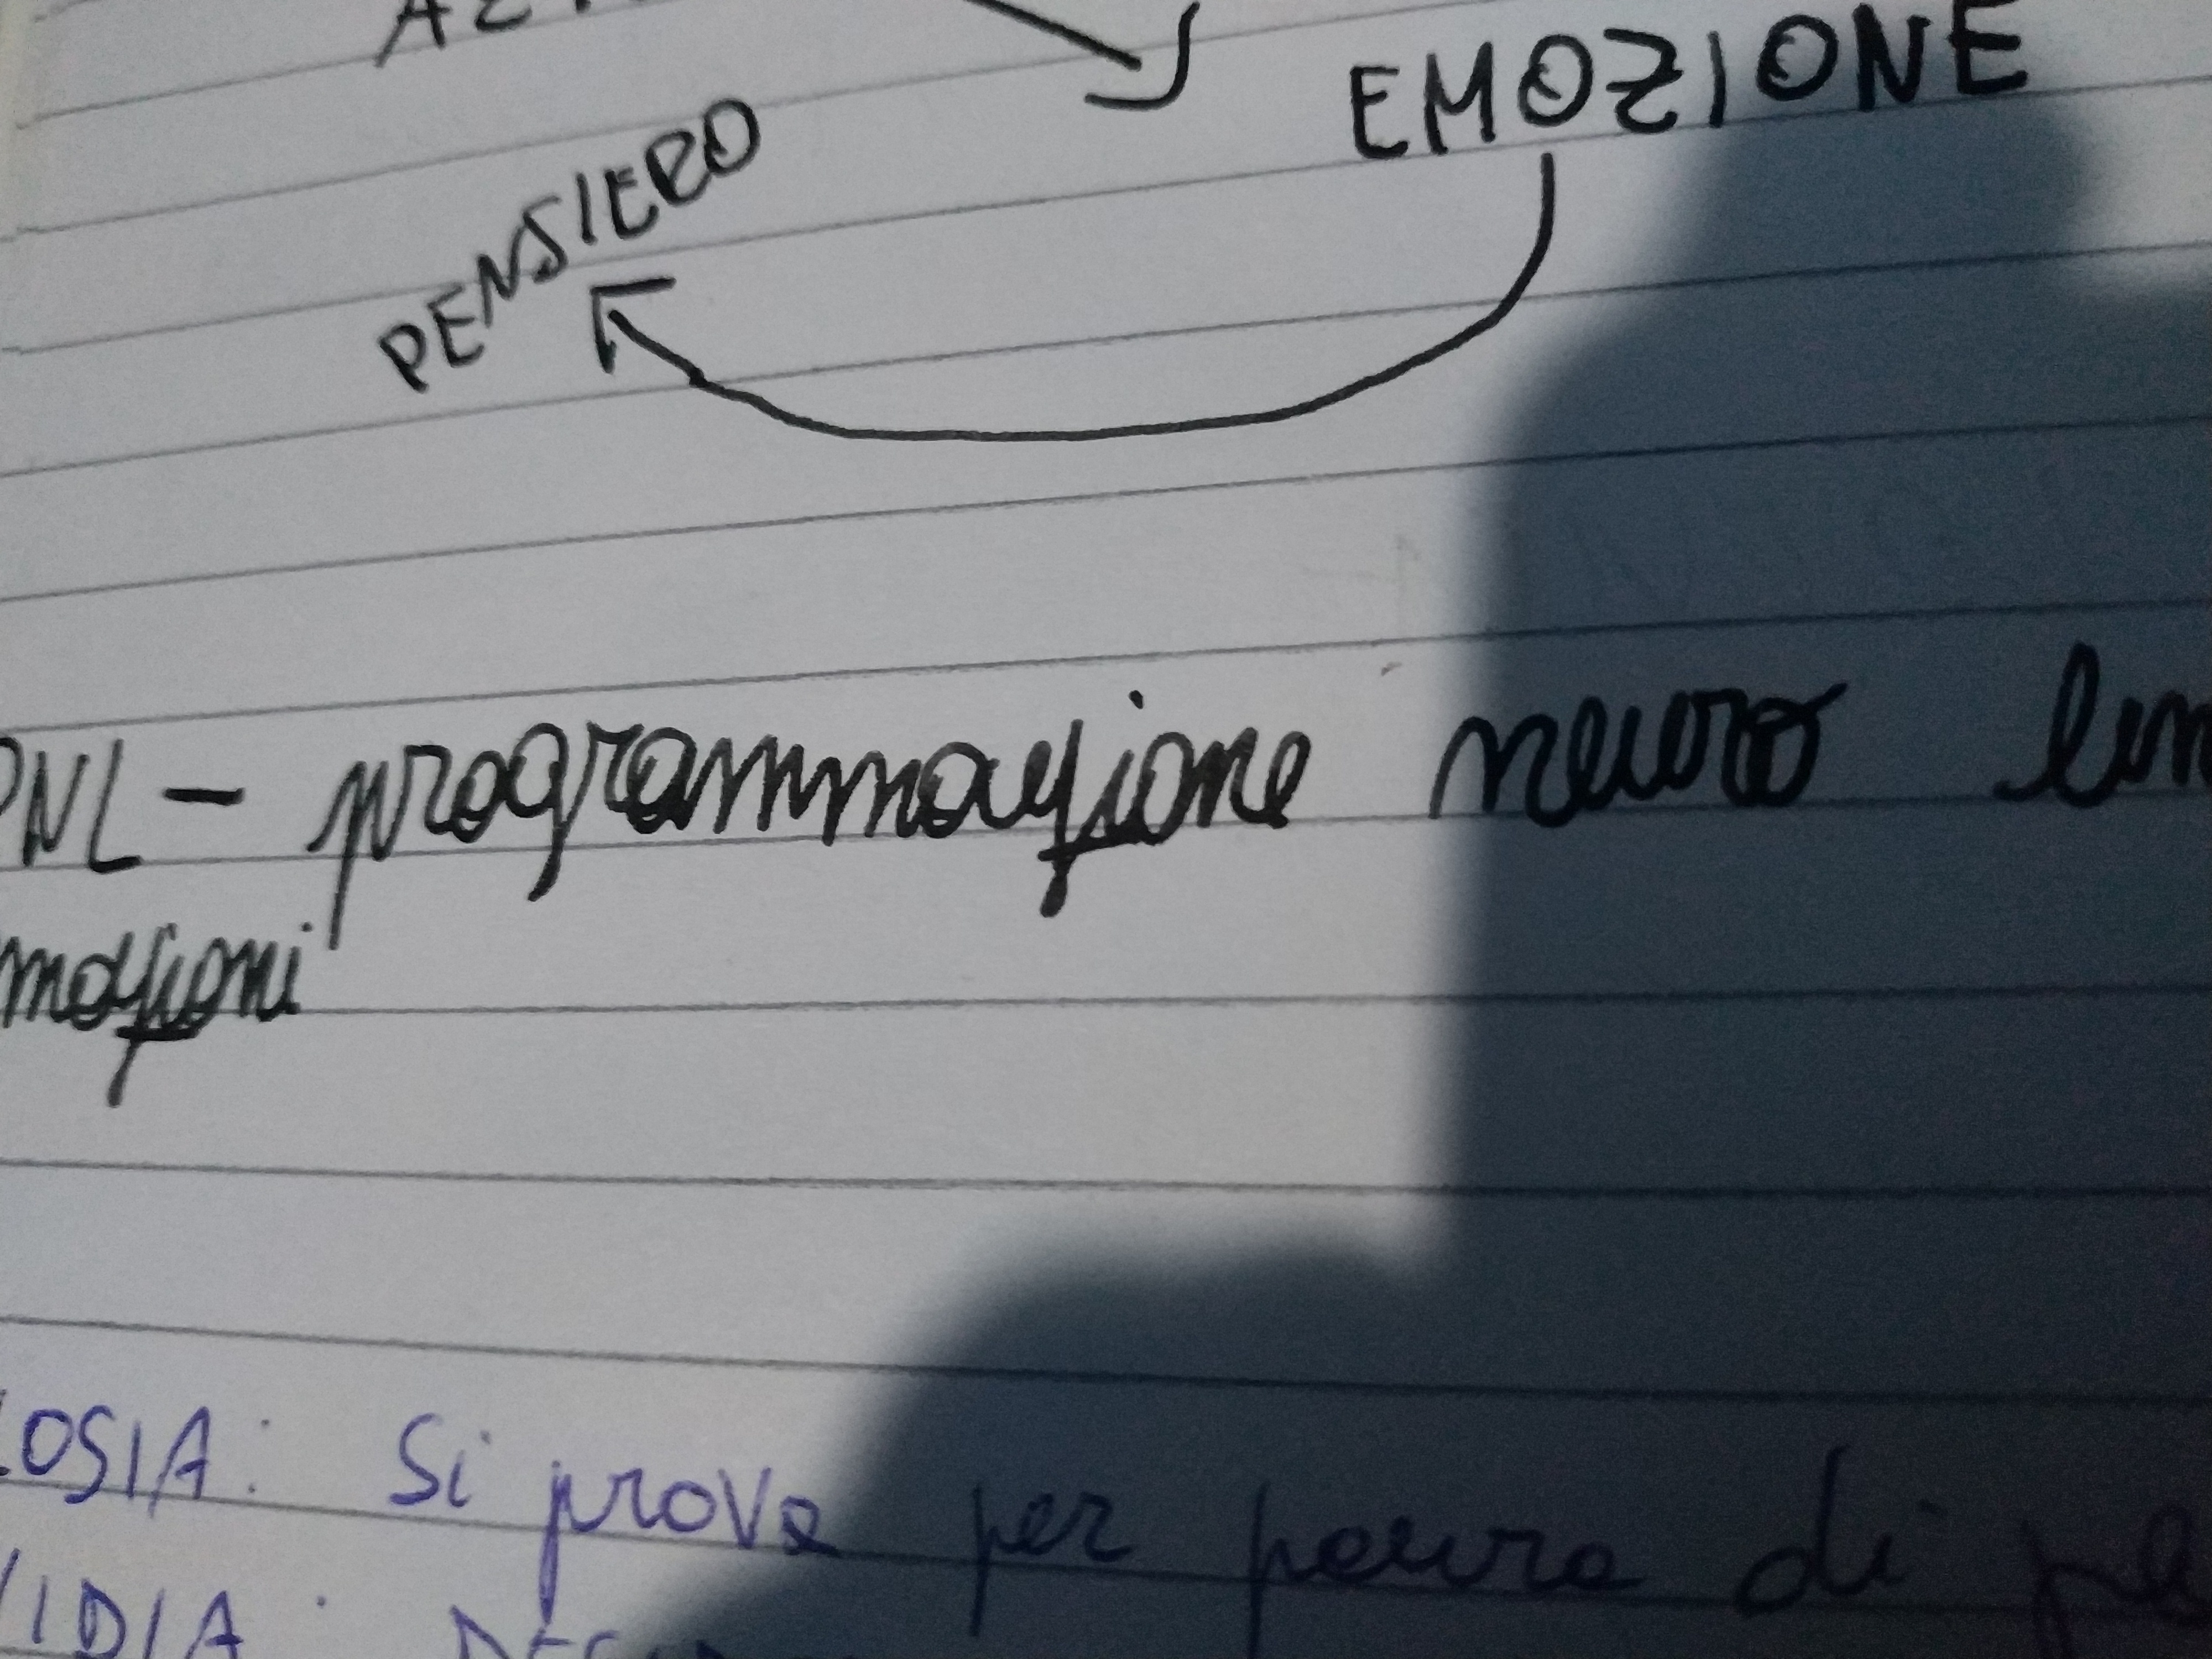 EMOZIONE
PENSIERO
PNL - programmazione neuro
mozioni
LOSIA: Si prova per paura di
VIDIA: